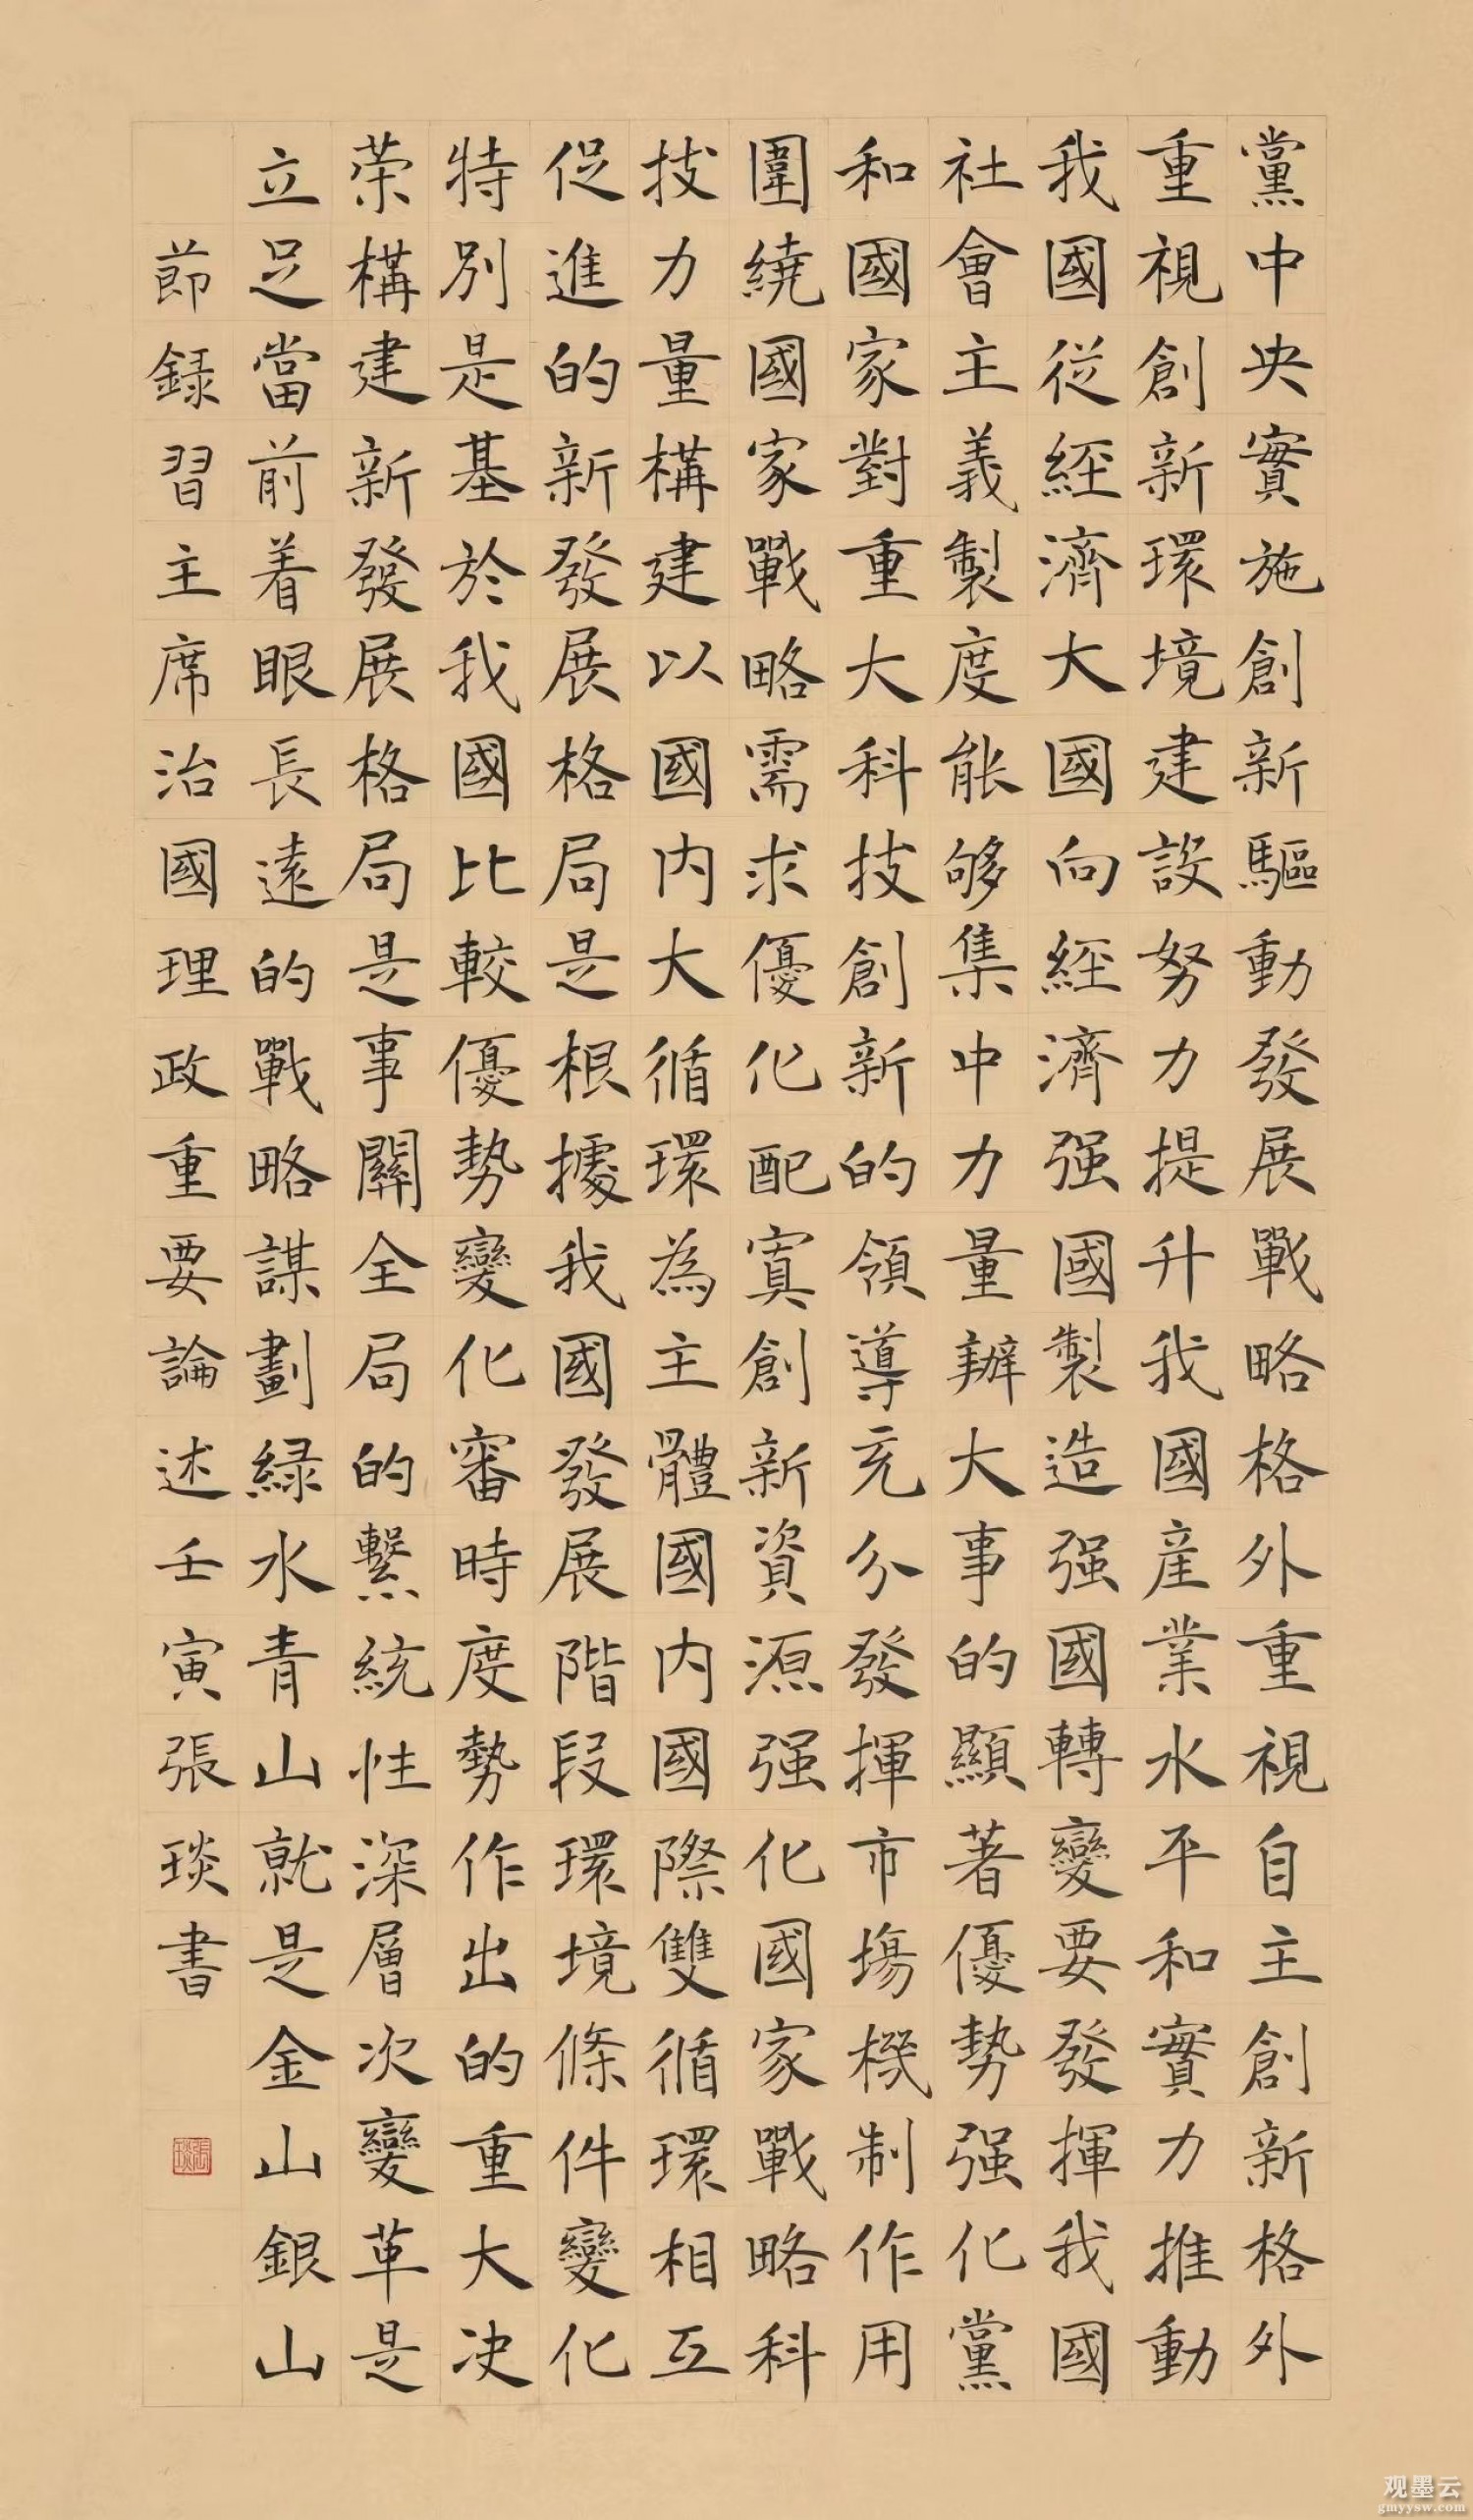 黨中央實施創新驅動發展戰略格外重視自主創新格外
重視創新環境建設努力提升我國產業水平和實力推動
我國從經濟大國向經濟强國製造强國轉變要發揮我國
社會主義製度能够集中力量辦大事的顯著優勢强化黨
和國家對重大科技創新的領導充分發揮市場機制作用
圍繞國家戰略需求優化配寘創新資源强化國家戰略科
技力量構建以國内大循環為主體國内國際雙循環相互
促進的新發展格局是根據我國發展階段環境條件變化
特別是基於我國比較優勢變化審時度勢作出的重大决
荣構建新發展格局是事關全局的繫統性深層次變革是
立足當前着眼長遠的戰略謀劃緑水青山就是金山銀山
節録習主席治國理政重要論述壬寅張琰書
張琰
观墨云
gmyysw.com